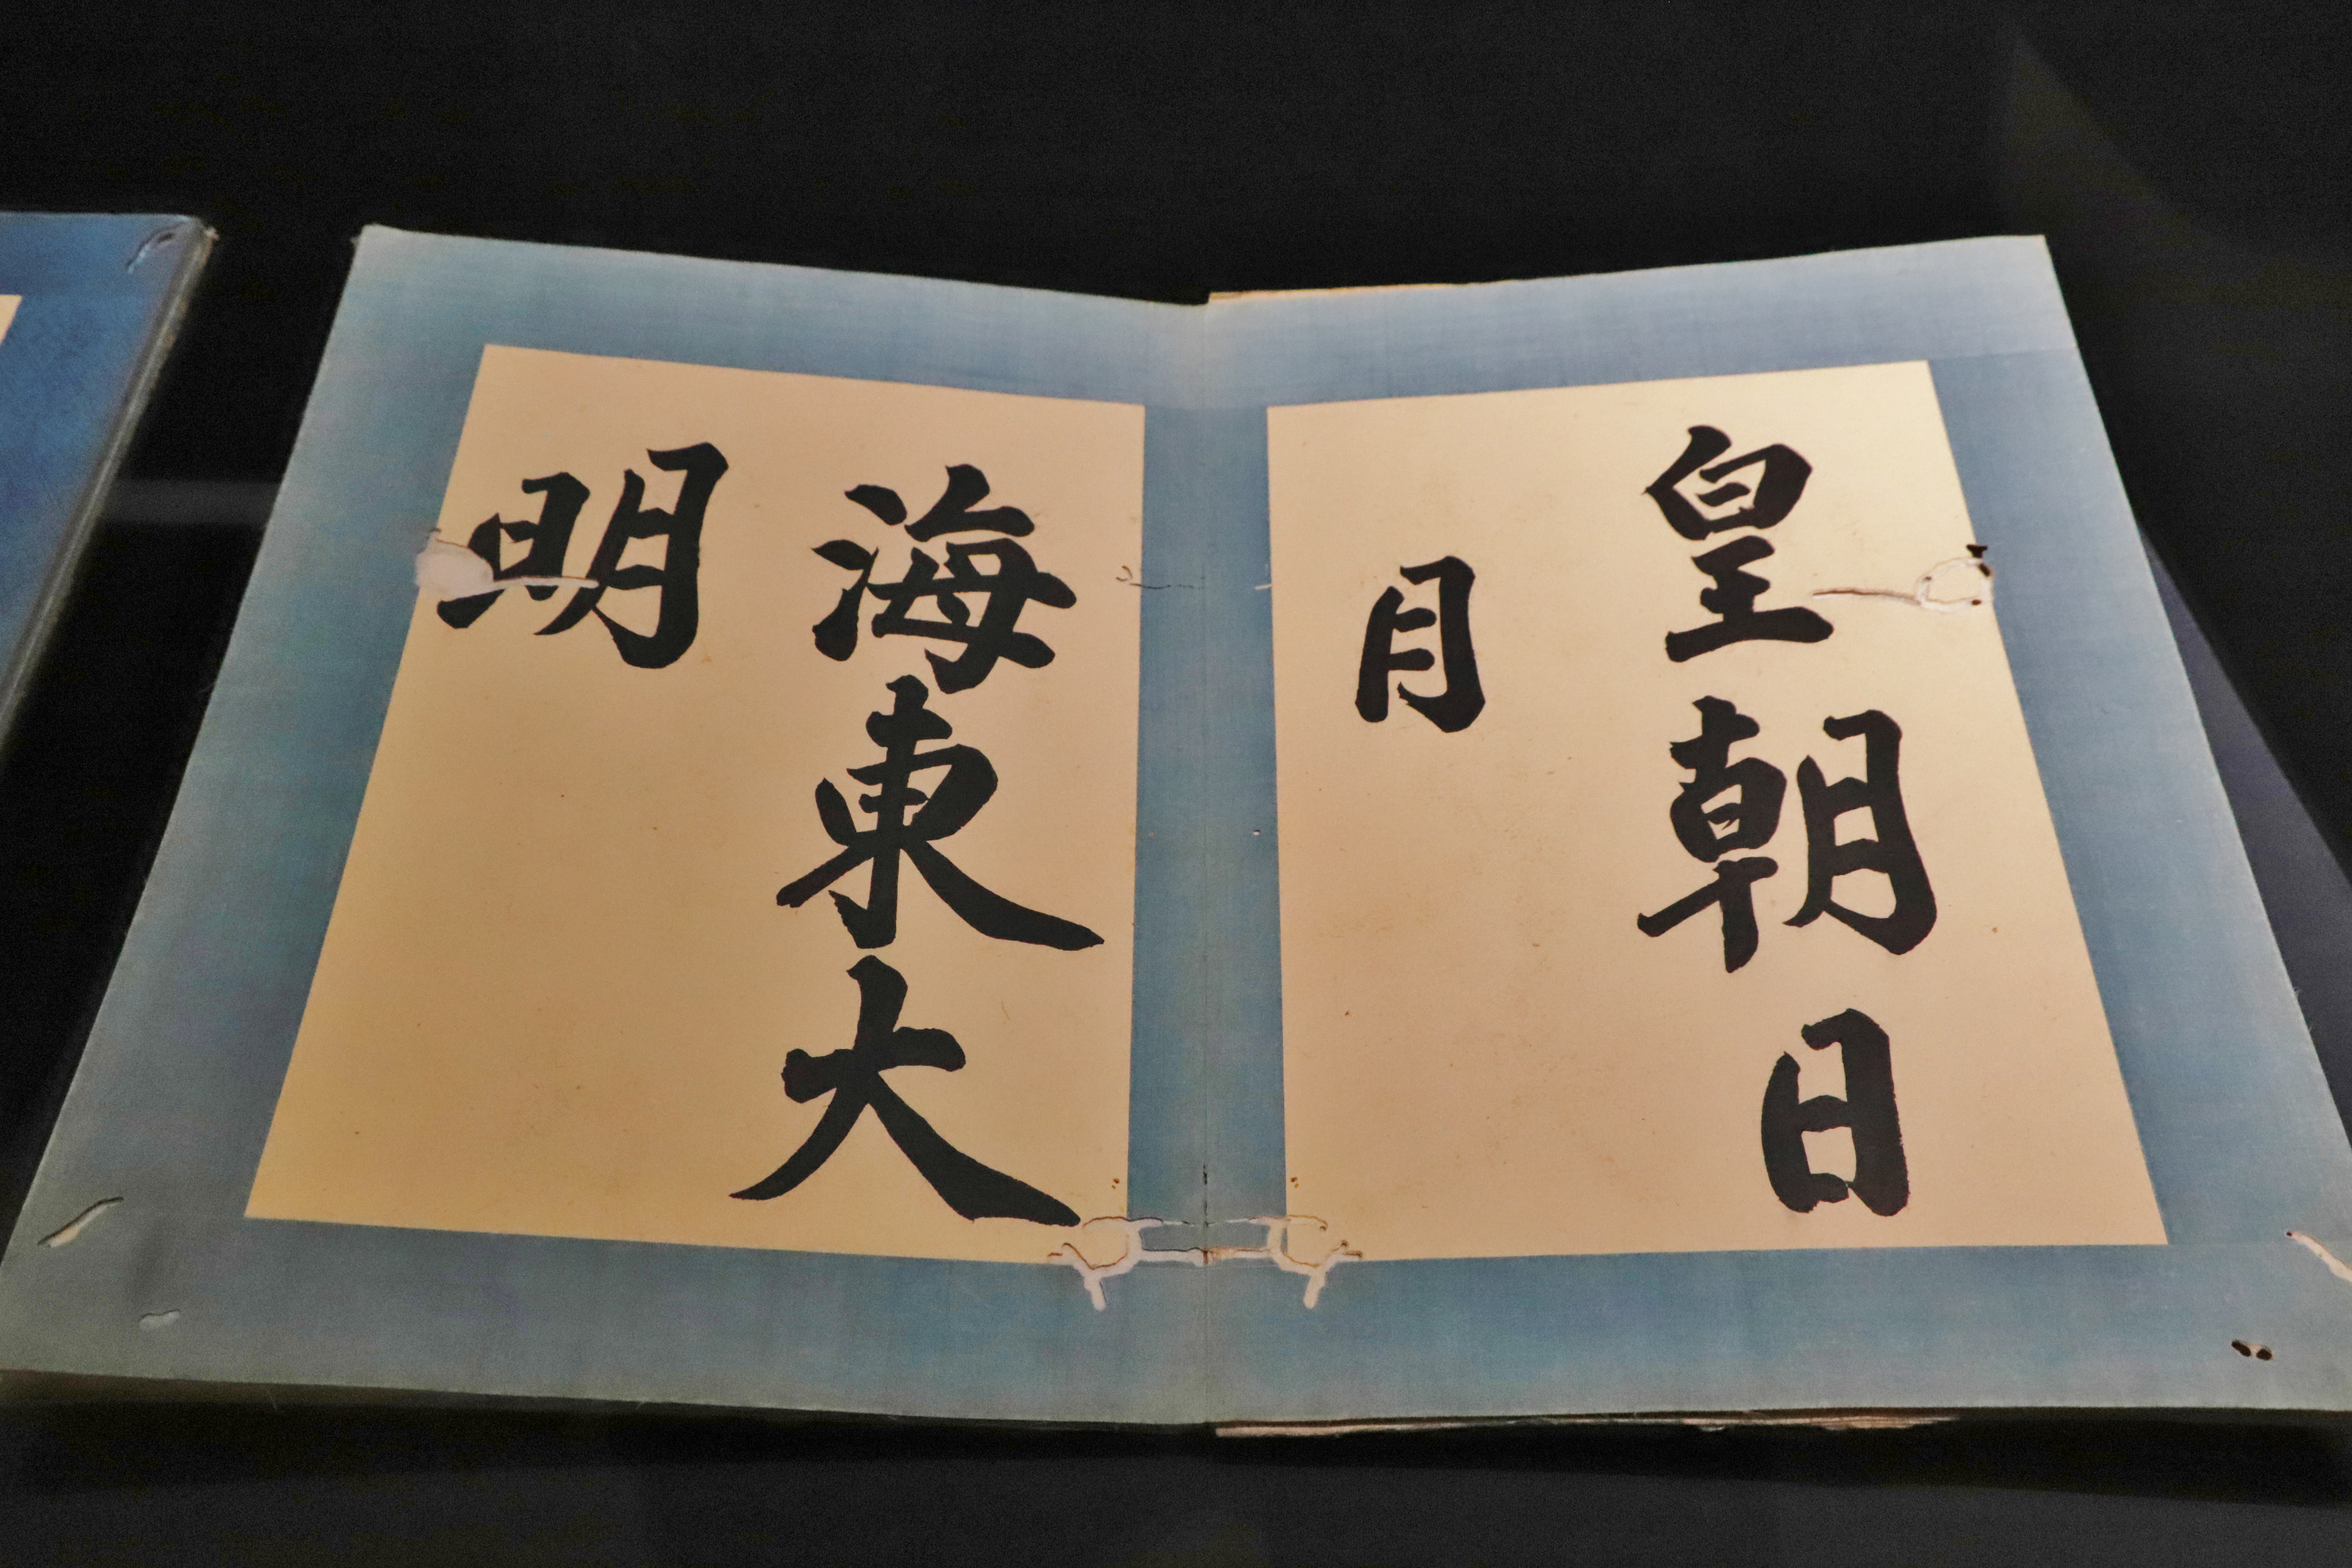 皇朝日
月
海東大
明